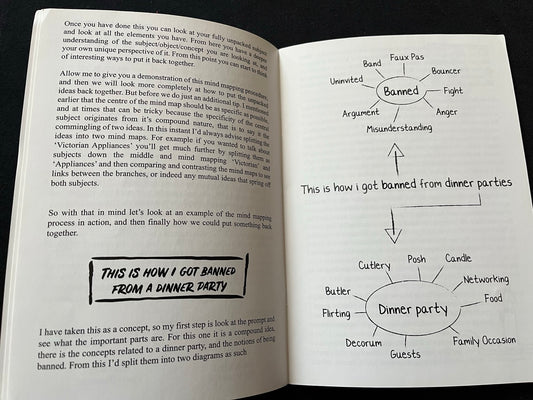 Once you have done this you can look at your fully unpacked subject
and look at all the elements you have. From here you have a deeper
understanding of the subject/object/concept you are looking at, and
your own unique perspective of it. From this point you can start to think
of interesting ways to put it back together.
Allow me to give you a demonstration of this mind mapping procedure,
and then we will look more completely at how to put the unpacked
ideas back together. But before we do just an additional tip. I mentioned
earlier that the centre of the mind map should be as specific as possible,
and at times that can be tricky because the specificity of the central
subject originates from it's compound nature, that is to say it the
commingling of two ideas. In this instant I'd always advise splitting the
ideas into two mind maps. For example if you wanted to talk about
'Victorian Appliances' you'll get much further by splitting them as
subjects down the middle and mind mapping 'Victorian' and
'Appliances' and then comparing and contrasting the mind maps to see
links between the branches, or indeed any mutual ideas that spring off
both subjects.
So with that in mind let's look at an example of the mind mapping
process in action, and then finally how we could put something back
together.
THIS IS HOW I GOT BANNED
FROM A DINNER PARTY
I have taken this as a concept, so my first step is look at the prompt and
see what the important parts are. For this one it is a compound idea,
there is the concepts related to a dinner party, and the notions of being
banned. From this I'd split them into two diagrams as such
Faux Pas
Band
Bouncer
Uninvited
Banned
Fight
Argument
Anger
Misunderstanding
This is how i got banned from dinner parties
Posh
Candle
Cutlery
Networking
Butler
Food
Flirting
Dinner party
Decorum
Family Occasion
Guests